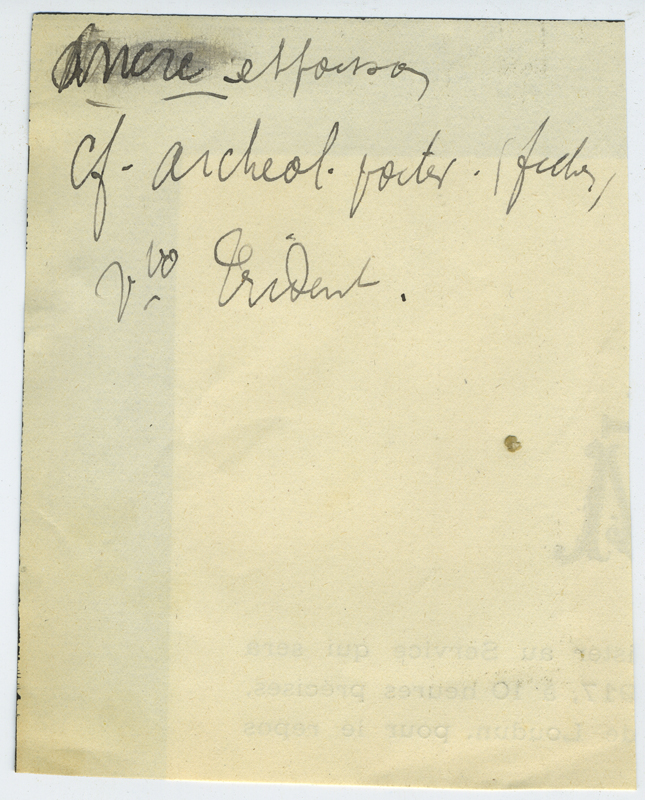 Ancre et poisson
Cf. archeol. poitev. (fiches)
v^bo Trident.
au Service qui sera
à 10 heures précises,
Loudun, pour le repos